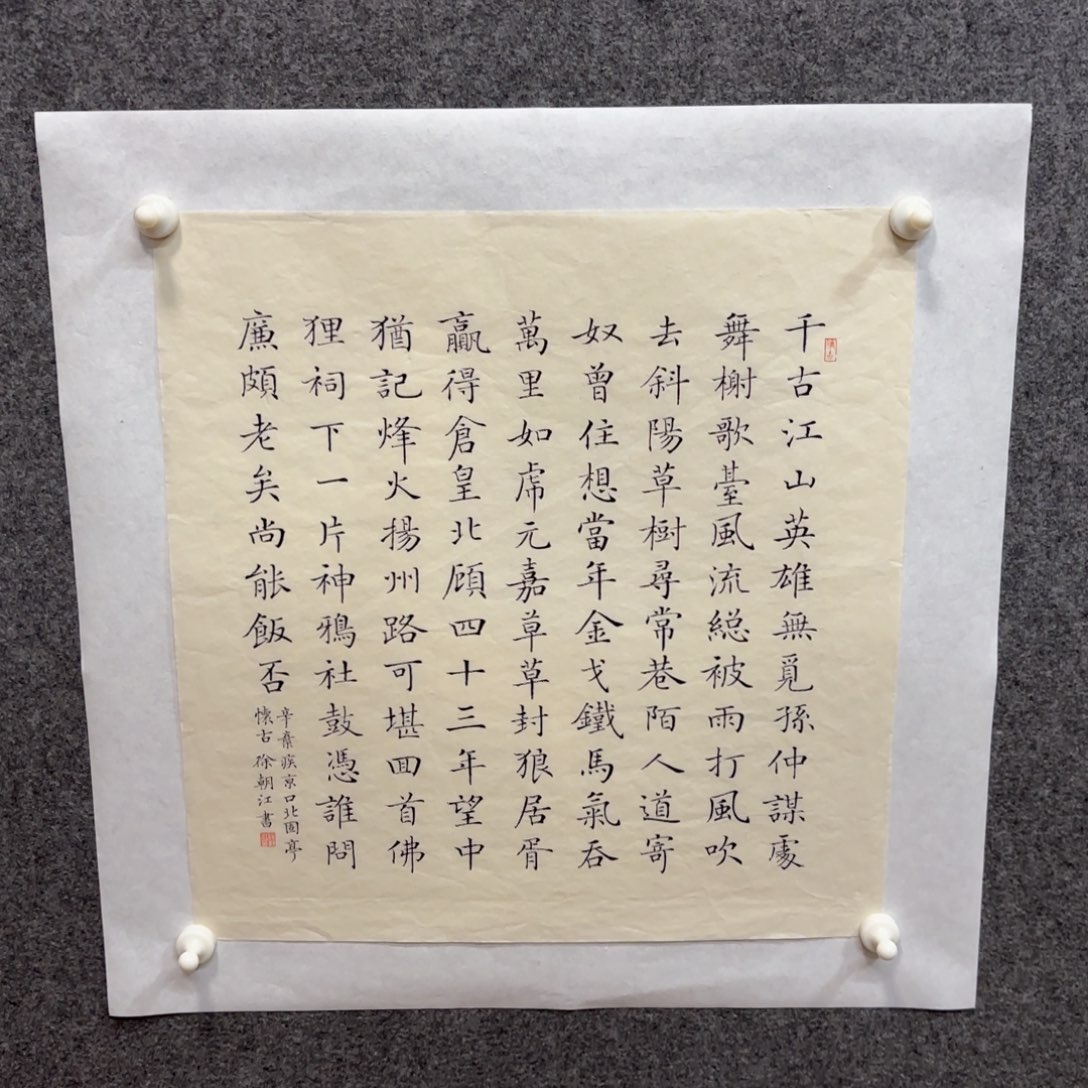 千古江山英雄無覓孫仲謀處
舞榭歌臺風流總被雨打風吹
去斜陽草樹尋常巷陌人道寄
奴曾住想當年金戈鐵馬氣吞
萬里如虎元嘉草草封狼居胥
贏得倉皇北顧四十三年望中
猶記烽火揚州路可堪回首佛
狸祠下一片神鴉社鼓憑誰問
廉頗老矣尚能飯否
辛棄疾京口北固亭
懷古 徐朝江書